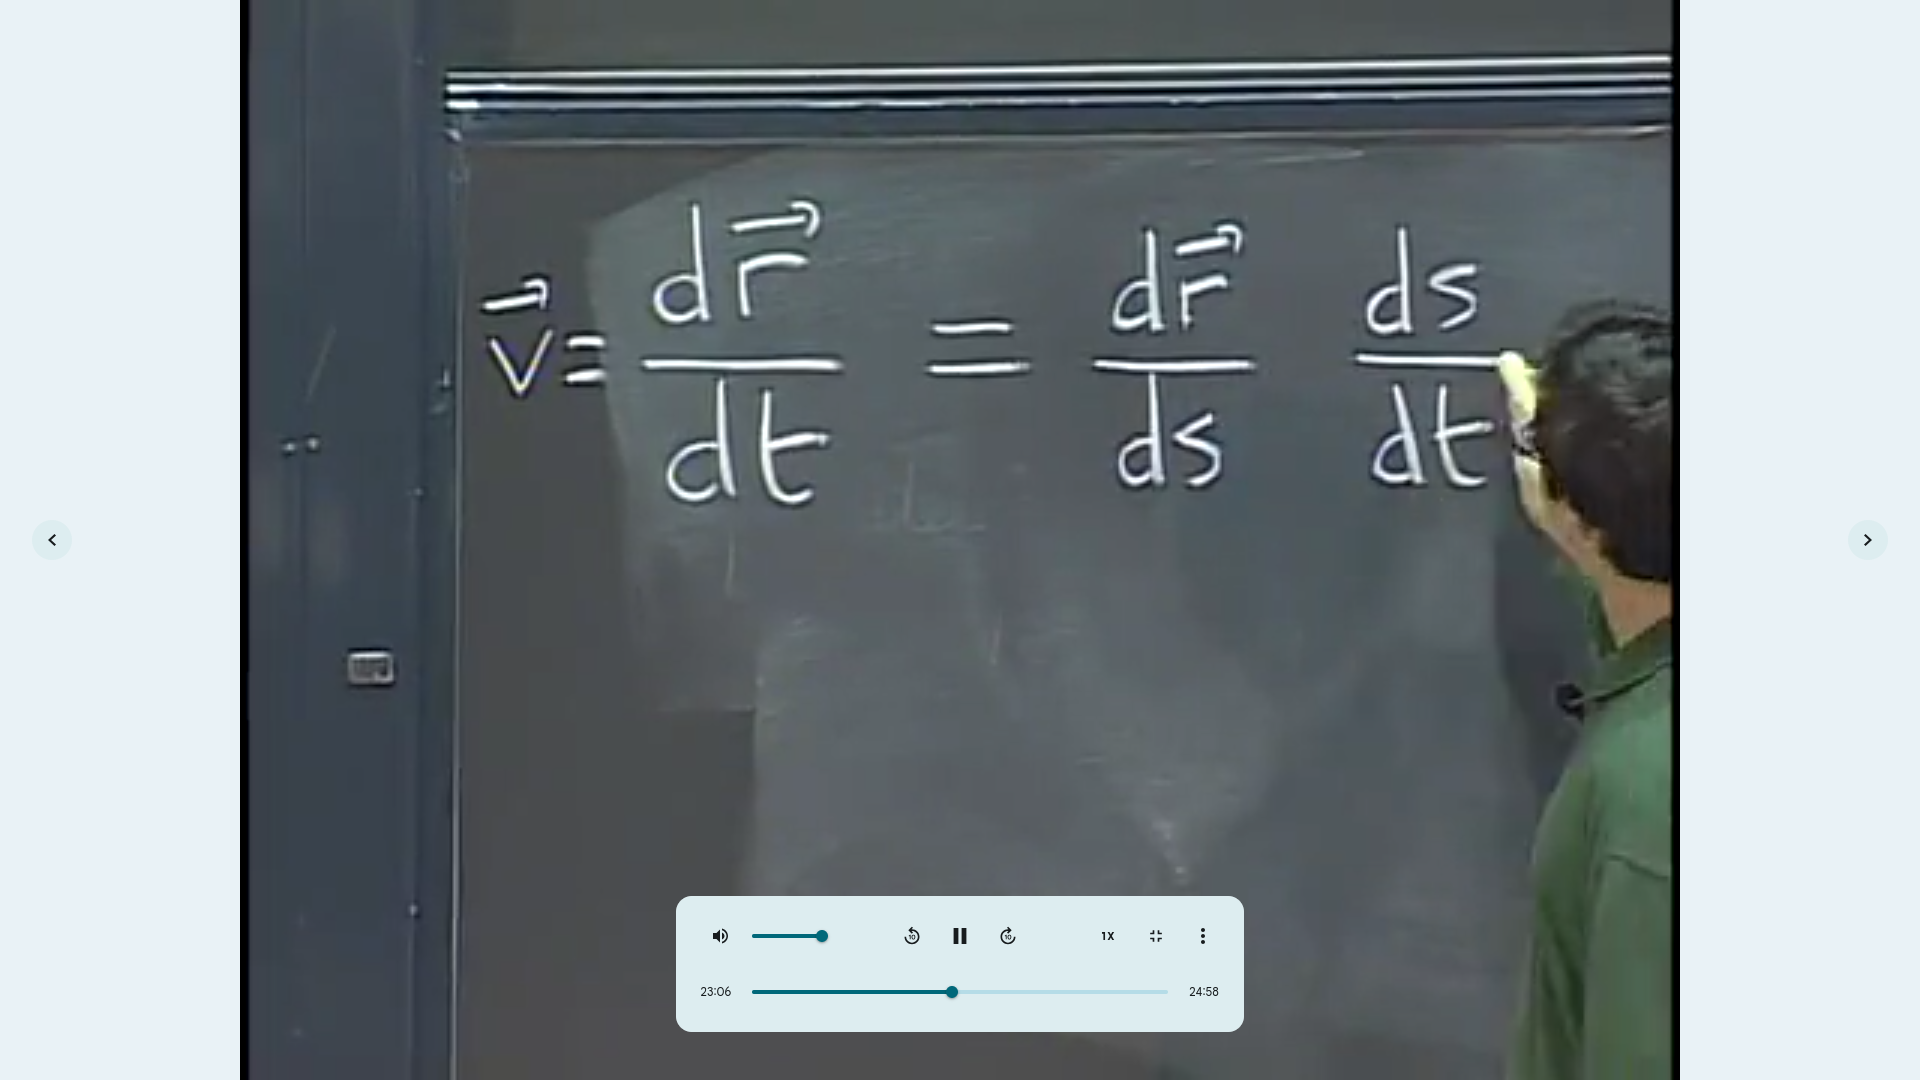 v⃗ = dr⃗/dt = dr⃗/ds ds/dt
10 10 1X
23:06 24:58